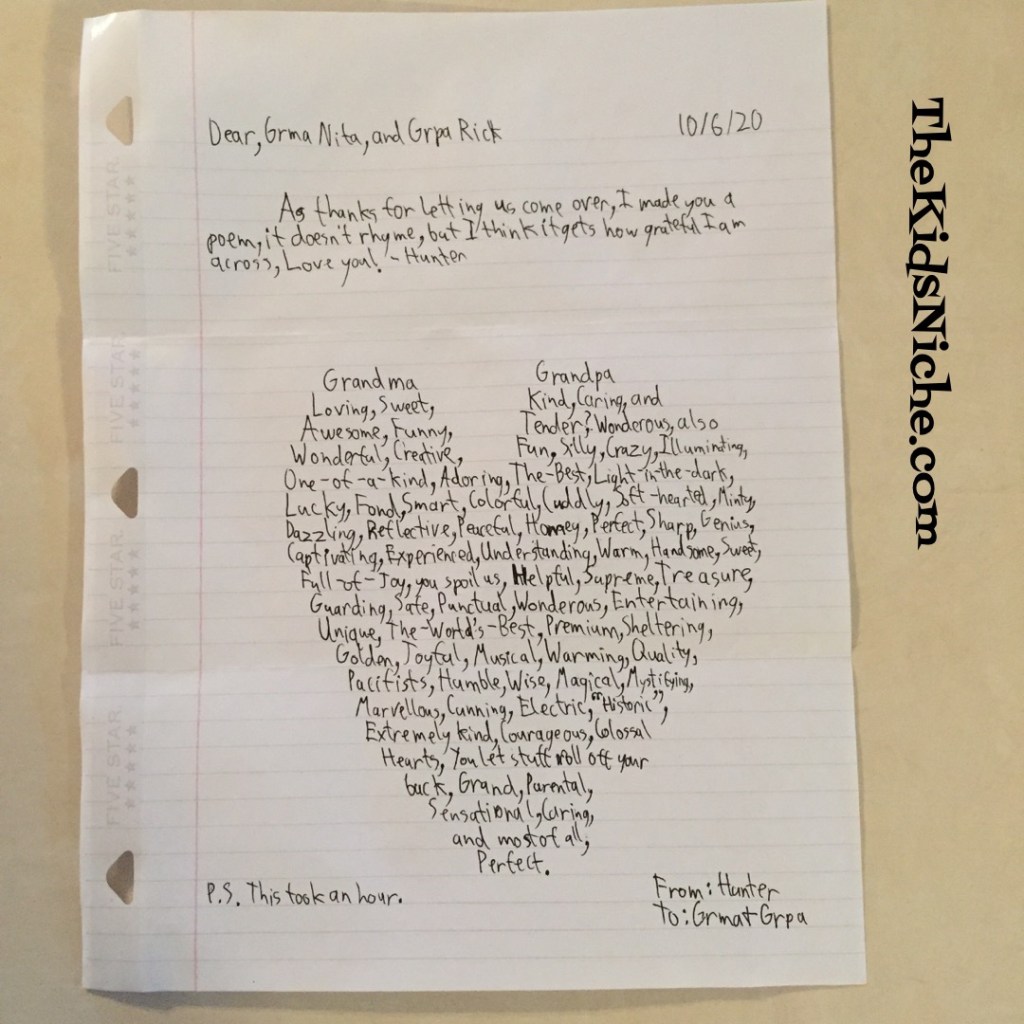 Dear, Grma Nita, and Grpa Rick
10/6/20
As thanks for letting us come over, I made you a
poem, it doesn't rhyme, but I think it gets how grateful I am
across, Love you! - Hunter
Grandma
Grandpa
Loving, Sweet,
Kind, Caring, and
Awesome, Funny,
Tender? Wonderous, also
Wonderful, Creative,
Fun, Silly, Crazy, Illuminating,
One-of-a-kind, Adoring, The-Best, Light-in-the-dark,
Lucky, Fond, Smart, Colorful, Cuddly, Soft-hearted, Minty,
Dazzling, Reflective, Peaceful, Homey, Perfect, Sharp, Genius,
Captivating, Experienced, Understanding, Warm, Handsome, Sweet,
Full-of-Joy, you spoil us, Helpful, Supreme, Treasure,
Guarding, Safe, Punctual, Wonderous, Entertaining,
Unique, The-World's-Best, Premium, Sheltering,
Golden, Joyful, Musical, Warming, Quality,
Pacifists, Humble, Wise, Magical, Mystifying,
Marvellous, Cunning, Electric, "Historic",
Extremely kind, Courageous, Colossal
Hearts, You let stuff roll off your
back, Grand, Parental,
Sensational, Caring,
and most of all,
Perfect.
P.S. This took an hour.
From: Hunter
To: Grma + Grpa
FIVE STAR
FIVE STAR
FIVE STAR
FIVE STAR
TheKidsNiche.com